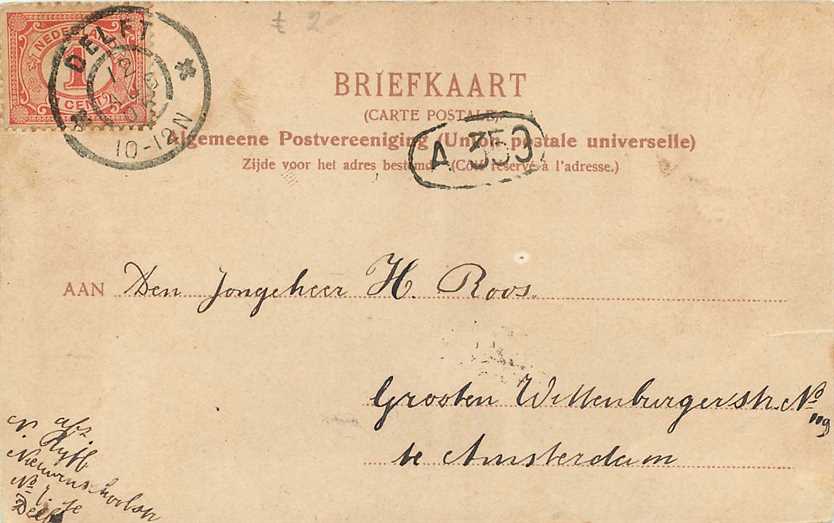 £ 2-
NEDERLAND
1
CENT
DELFT
10-12N
BRIEFKAART
(CARTE POSTALE)
Algemeene Postvereeniging (Union postale universelle)
Zijde voor het adres bestemd. (Côté réservé à l'adresse.)
A 359
AAN Den Jongeheer H. Roos.
Grooten Wittenburgerstr. No 119
te Amsterdam
afz
No
te
Delft